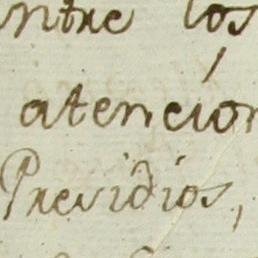 entre los
atencion
Presidios,